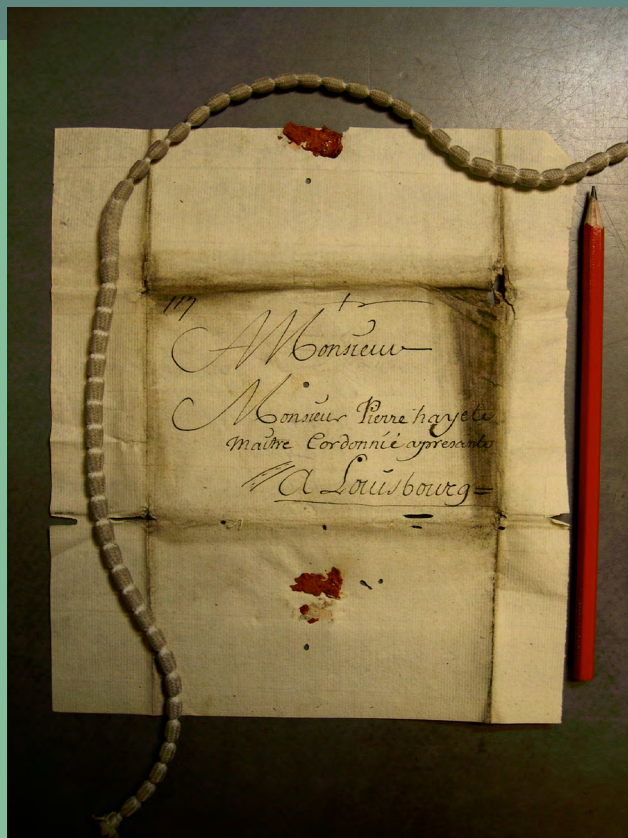 117
A Monsieur
Monsieur Pierre hayets
maitre Cordonnié apresanto
A Louisbourg =